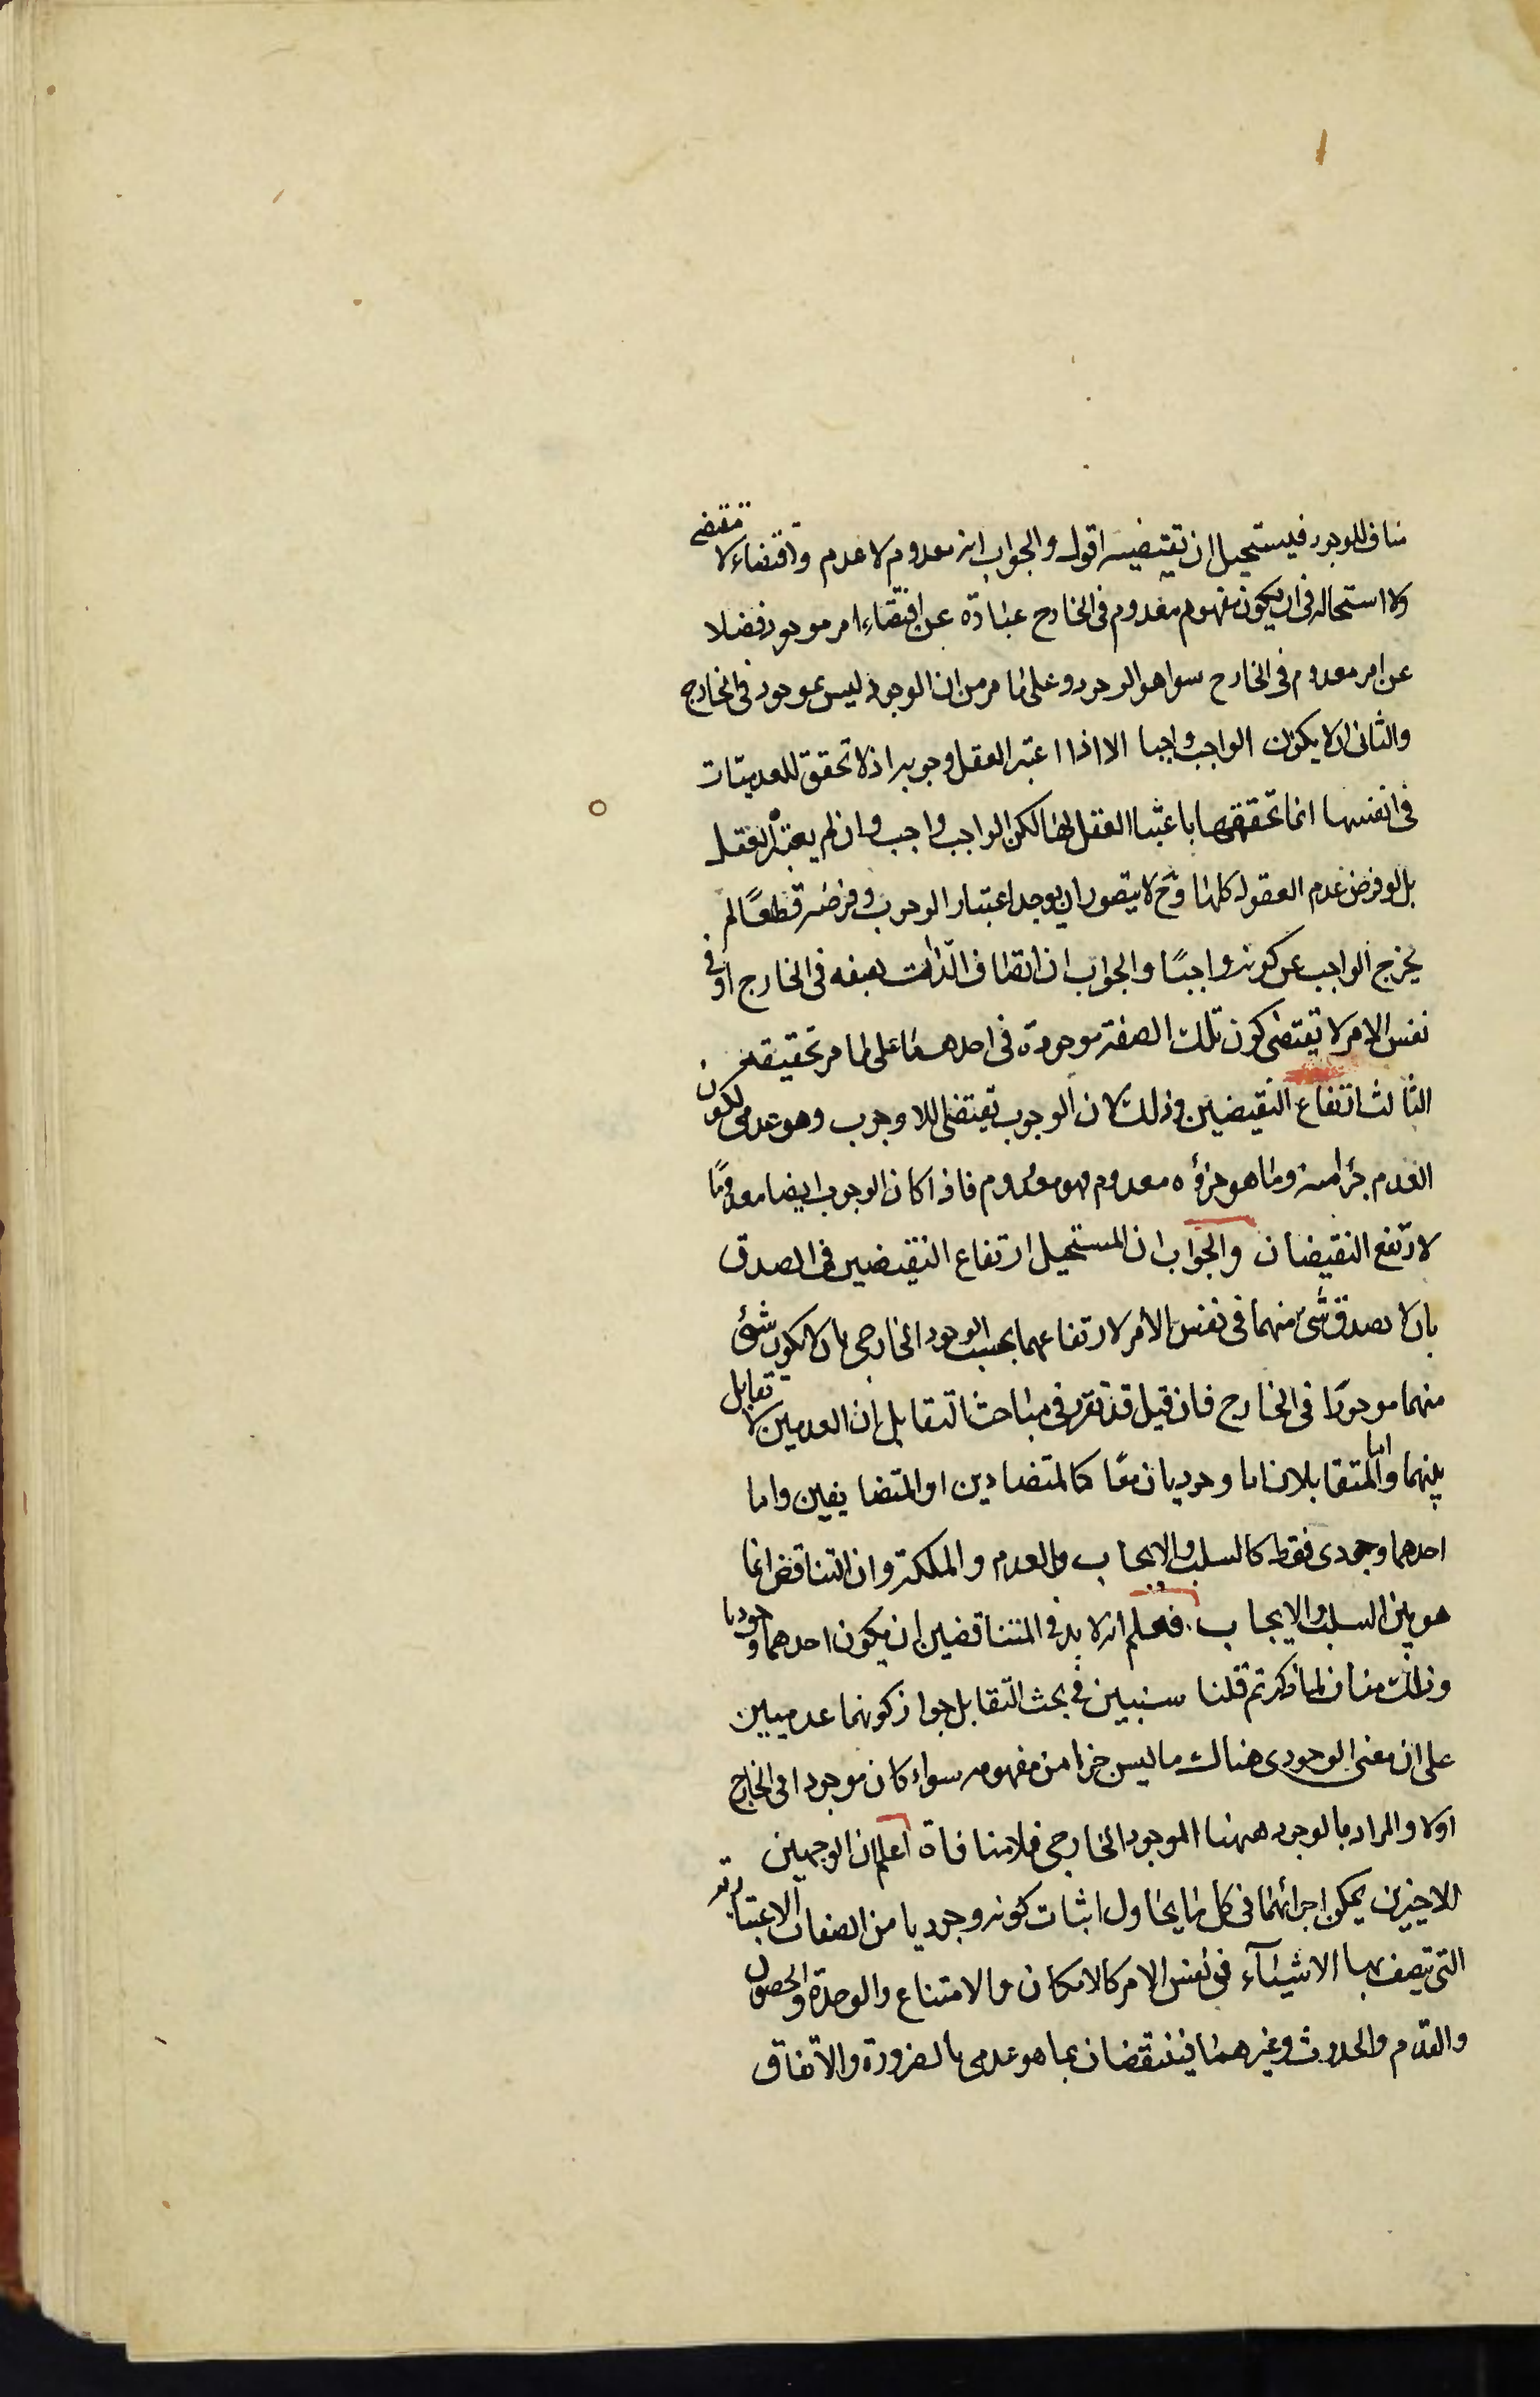 مناف للوجود فيستحيل ان تقتضيه اقول والجواب انه معدوم لا عدم واقتضاء لا مقتضى
ولا استحاله فى ان يكون مفهوم معدوم فى الخارج عبارة عن اقتضاء امر موجود فضلا
عن امر معدوم فى الخارج سواء هو الوجود وعلى ما مر من ان الوجود ليس بموجود فى الخارج
والثانى ان لا يكون الواجب واجبا الا اذا اعتبر العقل وجوبه اذ لا تحقق للعدميّات
فى انفسها انما تحققها باعتبار العقل لها لكن الواجب واجب وان لم يعتبره العقل
بل لو فرض عدم العقول كلها وح لا يتصور ان يوجد اعتبار الوجوب وفرضه قطعًا لم
يخرج الواجب عن كونه واجبًا والجواب ان اتصاف الذات بصفه فى الخارج او فى
نفس الامر لا تقتضى كون تلك الصفة موجودة فى احدهما على ما مر تحقيقه
الثالث ارتفاع النقيضين وذلك لان الوجوب نقيض اللا وجوب وهو عدمى لكون
العدم جزأ منه وما هو جزؤه معدوم فهو معدوم فاذا كان الوجوب ايضا معدومًا
لارتفع النقيضان والجواب ان المستحيل ارتفاع النقيضين فى الصدق
بان لا يصدق شئ منهما فى نفس الأمر لا ارتفاعهما بحسب الوجود الخارجى بان لا يكون شئ
منهما موجودًا فى الخارج فان قيل قد تقرر فى مباحث التقابل ان العدميين لا تقابل
بينهما وانما المتقابلان اما وجوديان معًا كالمتضادين او المتضايفين واما
احدهما وجودى فقط كالسلب والايجاب والعدم والملكة وان التناقض انما
هو بين السلب والايجاب فعلم انه لا بد فى المتناقضين ان يكون احدهما وجوديا
وذلك مناف لما ذكرتم قلنا سنبين فى بحث التقابل جواز كونهما عدميين
على ان معنى الوجودى هناك ما ليس جزا من مفهومه سواء كان موجودا فى الخارج
اولا والمراد بالوجود ههنا الموجود الخارجى فلا منافاة اعلم ان الوجهين
الاخيرين يمكن اجرائهما فى كل ما يحاول اثبات كونه وجوديا من الصفات الاعتبارية
التى تتصف بها الاشيآء فى نفس الامر كالامكان والامتناع والوحدة والحصول
والقدم والحدوث وغيرهما فينتقضان بما هو عدمى بالضرورة والاتفاق